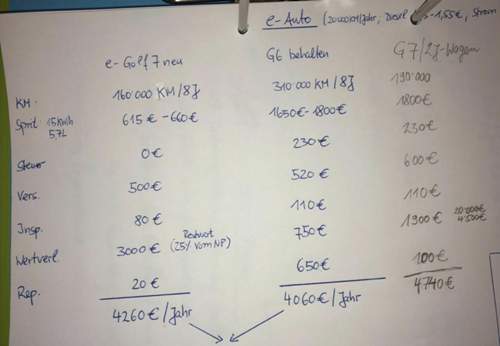 e-Auto (20.000KM/Jahr, Diesel 1,55€, Strom
e-Golf 7 neu G6 behalten G7/2J-Wagen
KM. 160'000 KM/8J 310'000 KM/8J 190'000
Sprit 15KWh 5,7L 615€-660€ 1650€-1800€ 1800€
Steuer 0€ 230€ 230€
Vers. 500€ 520€ 600€
Insp. 80€ 110€ 110€
Wertverl. 3000€ Restwert (25% vom NP) 750€ 1900€
Rep. 20€ 650€ 100€
4260€/Jahr 4060€/Jahr 4740€